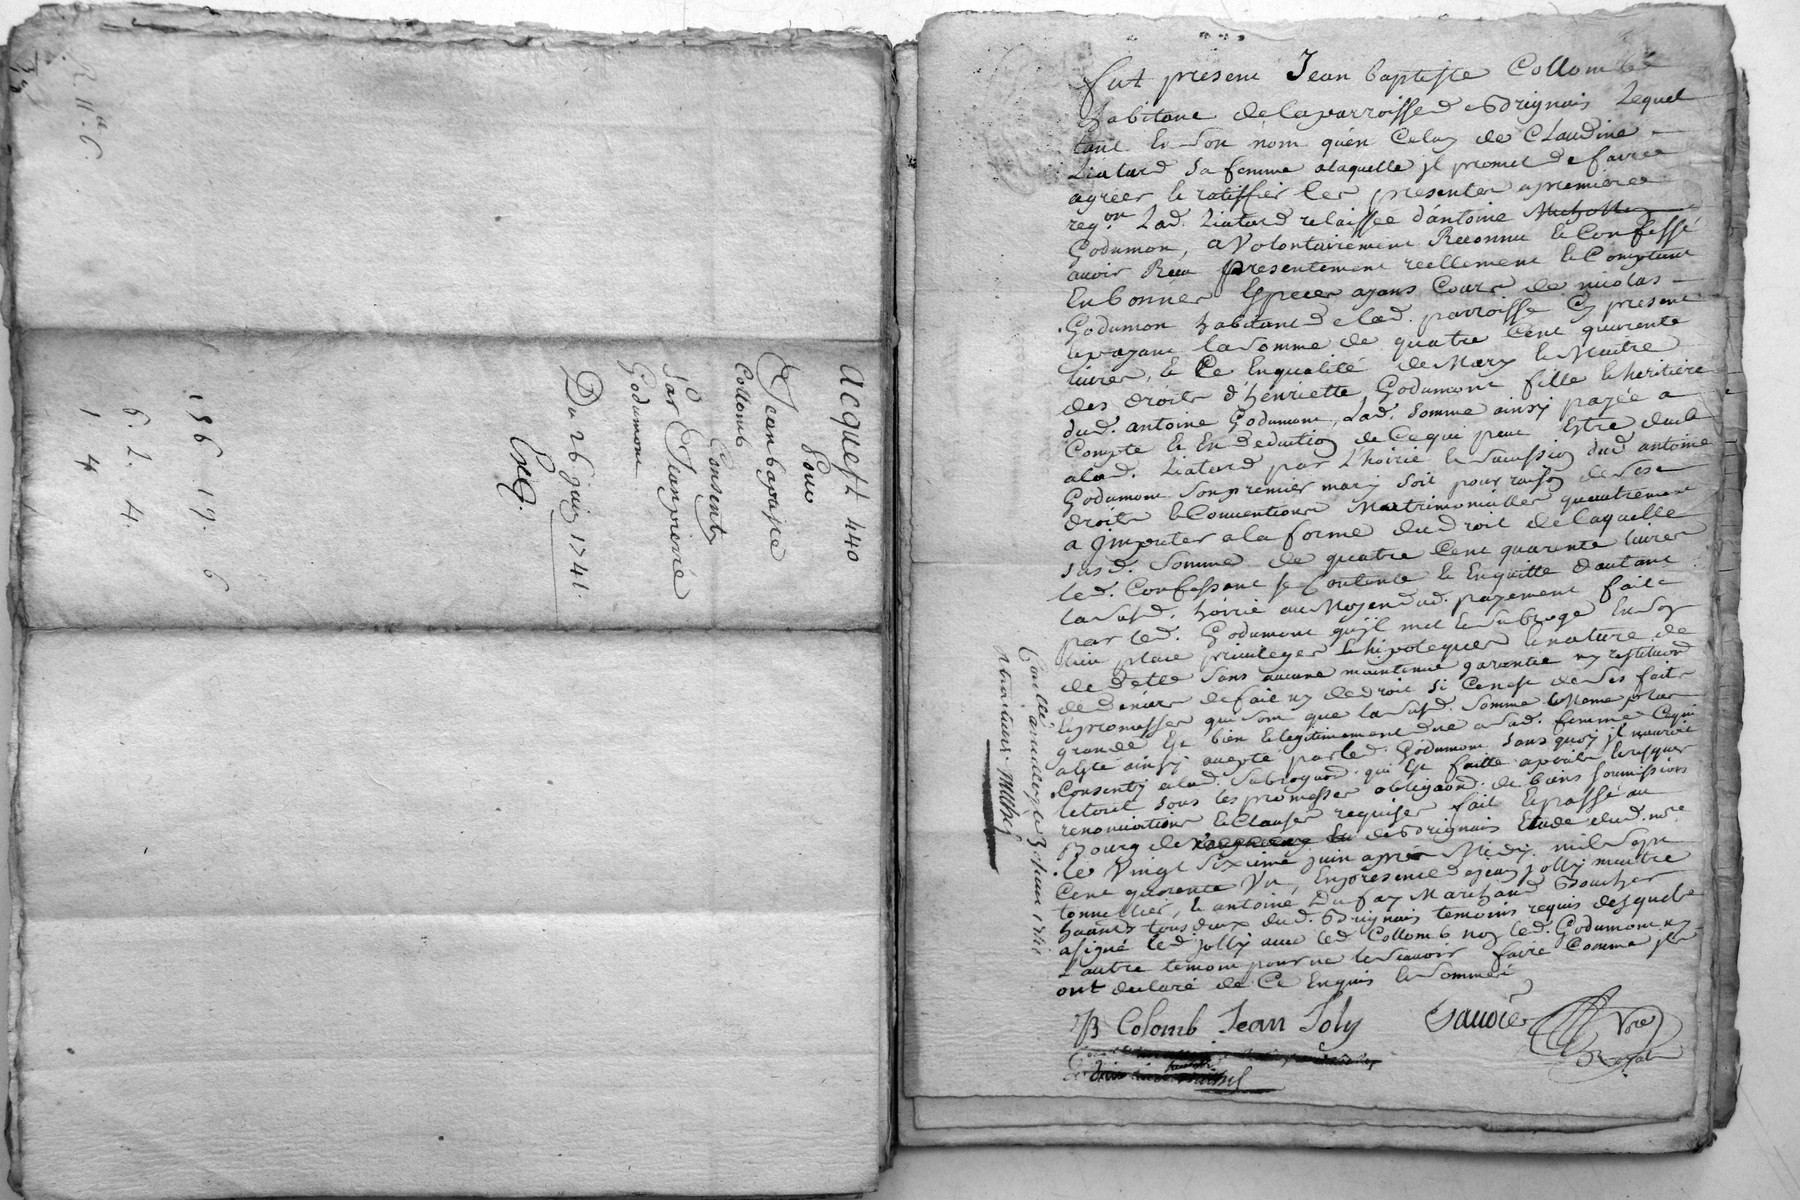 R. 11.^a C.
acquest 440
Pour
Jean bapiste
Collomb
Consenty
Par Jean pierre
Godumont
Du 26 juin 1741.
Exp.
136. 19. 6
6. 2. 4
1. 4
fut present Jean baptiste Collomb
habitant de la parroisse de Brignais Lequel
tant En son nom qu'en Celuy de Claudine
Liatard sa femme alaquelle jl promet de faire
agreer Et ratiffier les presentes a premiere
req.on Lad. Liatard relaissée d'antoine
Godumon, a Volontairement Reconnu Et Confessé
avoir Receu presentement reellement Et Comptant
En bonnes Especes ayans Cours de nicolas
Godumon habitant de lad. parroisse Cy present
Et payant la somme de quatre Cent quarente
livres, Et Ce En qualité de Mary Et Maitre
des droits d'henriette Godumont fille Et heritiere
dud. antoine Godumont, Lad. somme ainsy payée a
Compte Et En deduction de Ce qui peut Estre deub
a lad. Liatard par L'hoirie Et succession dud antoine
Godumont son premier mary soit pour raison de ses
droits Et Conventions Matrimonialles qu'autrement
a Jmputer a la forme du droit de laquelle
susd. somme de quatre Cent quarente livres
led. Confessant se Contente Et En quitte d'autant
la susd. hoirie au Moyen dud. payement fait
par led. Godumont qu'jl met Et subroge En son
lieu place privileges Et hipoteques Et nature de
de dette sans aucune maintenue garentie ny restitution
de deniers de fait ny de droit si Ce n'est de ses faits
Et promesses qui sont que la susd. somme Et Meme plus
grande Est bien Et legitimement due a sad. femme Ce qui
a Esté ainsy accepté par led. Godumont sans quoy jl n'auroit
Consenty a lad. subrogaon. qui Est faitte a perils Et risques
Le tout sous les promesses obligaons. de biens soumissions
renonciations Et Clauses requises fait Et passé au
Bourg de Brignais Etude dud. no.re
le Vingt sixieme juin apres Midy mil sept
Cent quarente Un, En presence de jean jolly maitre
tonnellier, Et antoine Dufay Marchand Boucher
haânts tous deux dud. Brignais temoins requis desquels
a signé led. jolly avec led Collomb non led. Godumont ny
L'autre temoin pour ne le scavoir faire Comme jls
ont declaré de Ce Enquis Et sommés
JB Colomb Jean Joly
No.re
Royal